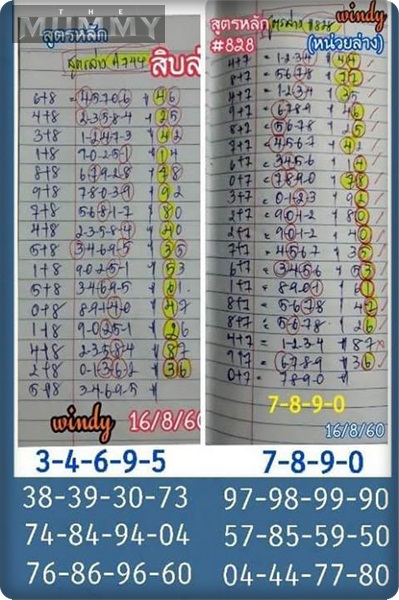 THE
MUMMY
สูตรหลัก
สูตรล่าง #744
สิบล่
6+8 = 45706 # 46
4+8 = 2-3-5-8-4 # 25
3+8 = 1-2-4-7-3 # 42
1+8 = 7-0-2-5-1 # 14
8+8 = 6-7-9-2-8 # 78
9+8 = 7-8-0-3-9 # 92
7+8 = 5-6-8-1-7 # 80
4+8 = 2-3-5-8-4 # 40
5+8 = 3-4-6-9-5 # 35
1+8 = 9-0-2-5-1 # 53
5+8 = 3-4-6-9-5 # 61
0+8 = 8-9-1-4-0 # 47
1+8 = 9-0-2-5-1 # 26
4+8 = 2-3-5-8-4 # 87
2+8 = 0-1-3-6-2 # 36
5+8 3-4-6-9-5 #
windy 16/8/60
สูตรหลัก
#828
สูตรล่าง #828
windy
(หน่วยล่าง)
4+7 = 1-2-3-4 # 44
8+7 = 5-6-7-8 # 77
4+7 = 1-2-3-4 # 35
9+7 = 6-7-8-9 # 46
8+7 = 5-6-7-8 # 25
7+7 = 4-5-6-7 # 42
6+7 = 3-4-5-6 # 14
0+7 = 7-8-9-0 # 78
3+7 = 0-1-2-3 # 92
2+7 = 9-0-1-2 # 80
2+7 = 9-0-1-2 # 40
7+7 = 4-5-6-7 # 35
6+7 = 3-4-5-6 # 53
1+7 = 8-9-0-1 # 61
8+7 = 5-6-7-8 # 47
8+7 = 5-6-7-8 # 26
4+7 = 1-2-3-4 # 87
9+7 = 6-7-8-9 # 36
0+7 = 7-8-9-0 #
7-8-9-0
16/8/60
3-4-6-9-5
7-8-9-0
38-39-30-73
74-84-94-04
76-86-96-60
97-98-99-90
57-85-59-50
04-44-77-80